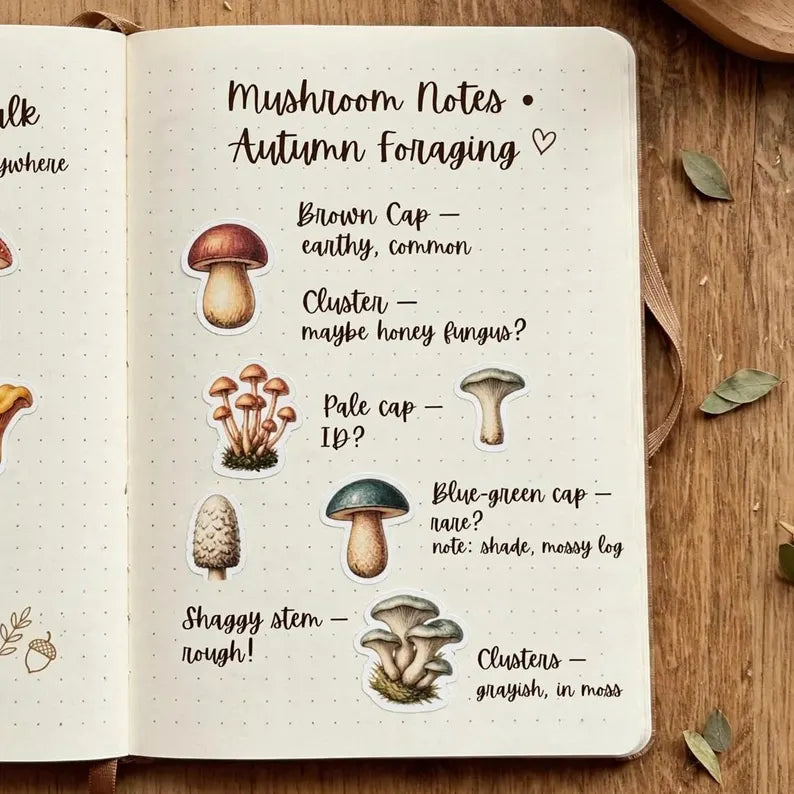 Mushroom Notes •
Autumn Foraging ♡
Brown Cap —
earthy, common
Cluster —
maybe honey fungus?
Pale cap —
ID?
Blue-green cap —
rare?
note: shade, mossy log
Shaggy stem —
rough!
Clusters —
grayish, in moss